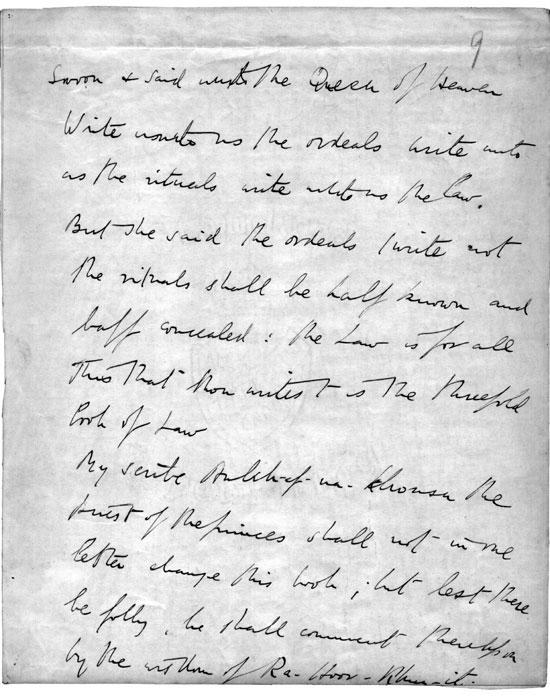 9
swoon & said unto the Queen of Heaven
Write unto us the ordeals write unto
us the rituals write unto us the law.
But she said the ordeals I write not
the rituals shall be half known and
half concealed: the Law is for all
This that thou writest is the threefold
book of Law
My scribe Ankh-af-na-khonsu the
priest of the princes shall not in one
letter change this book; but lest there
be folly, he shall comment thereupon
by the wisdom of Ra-Hoor-Khu-it.